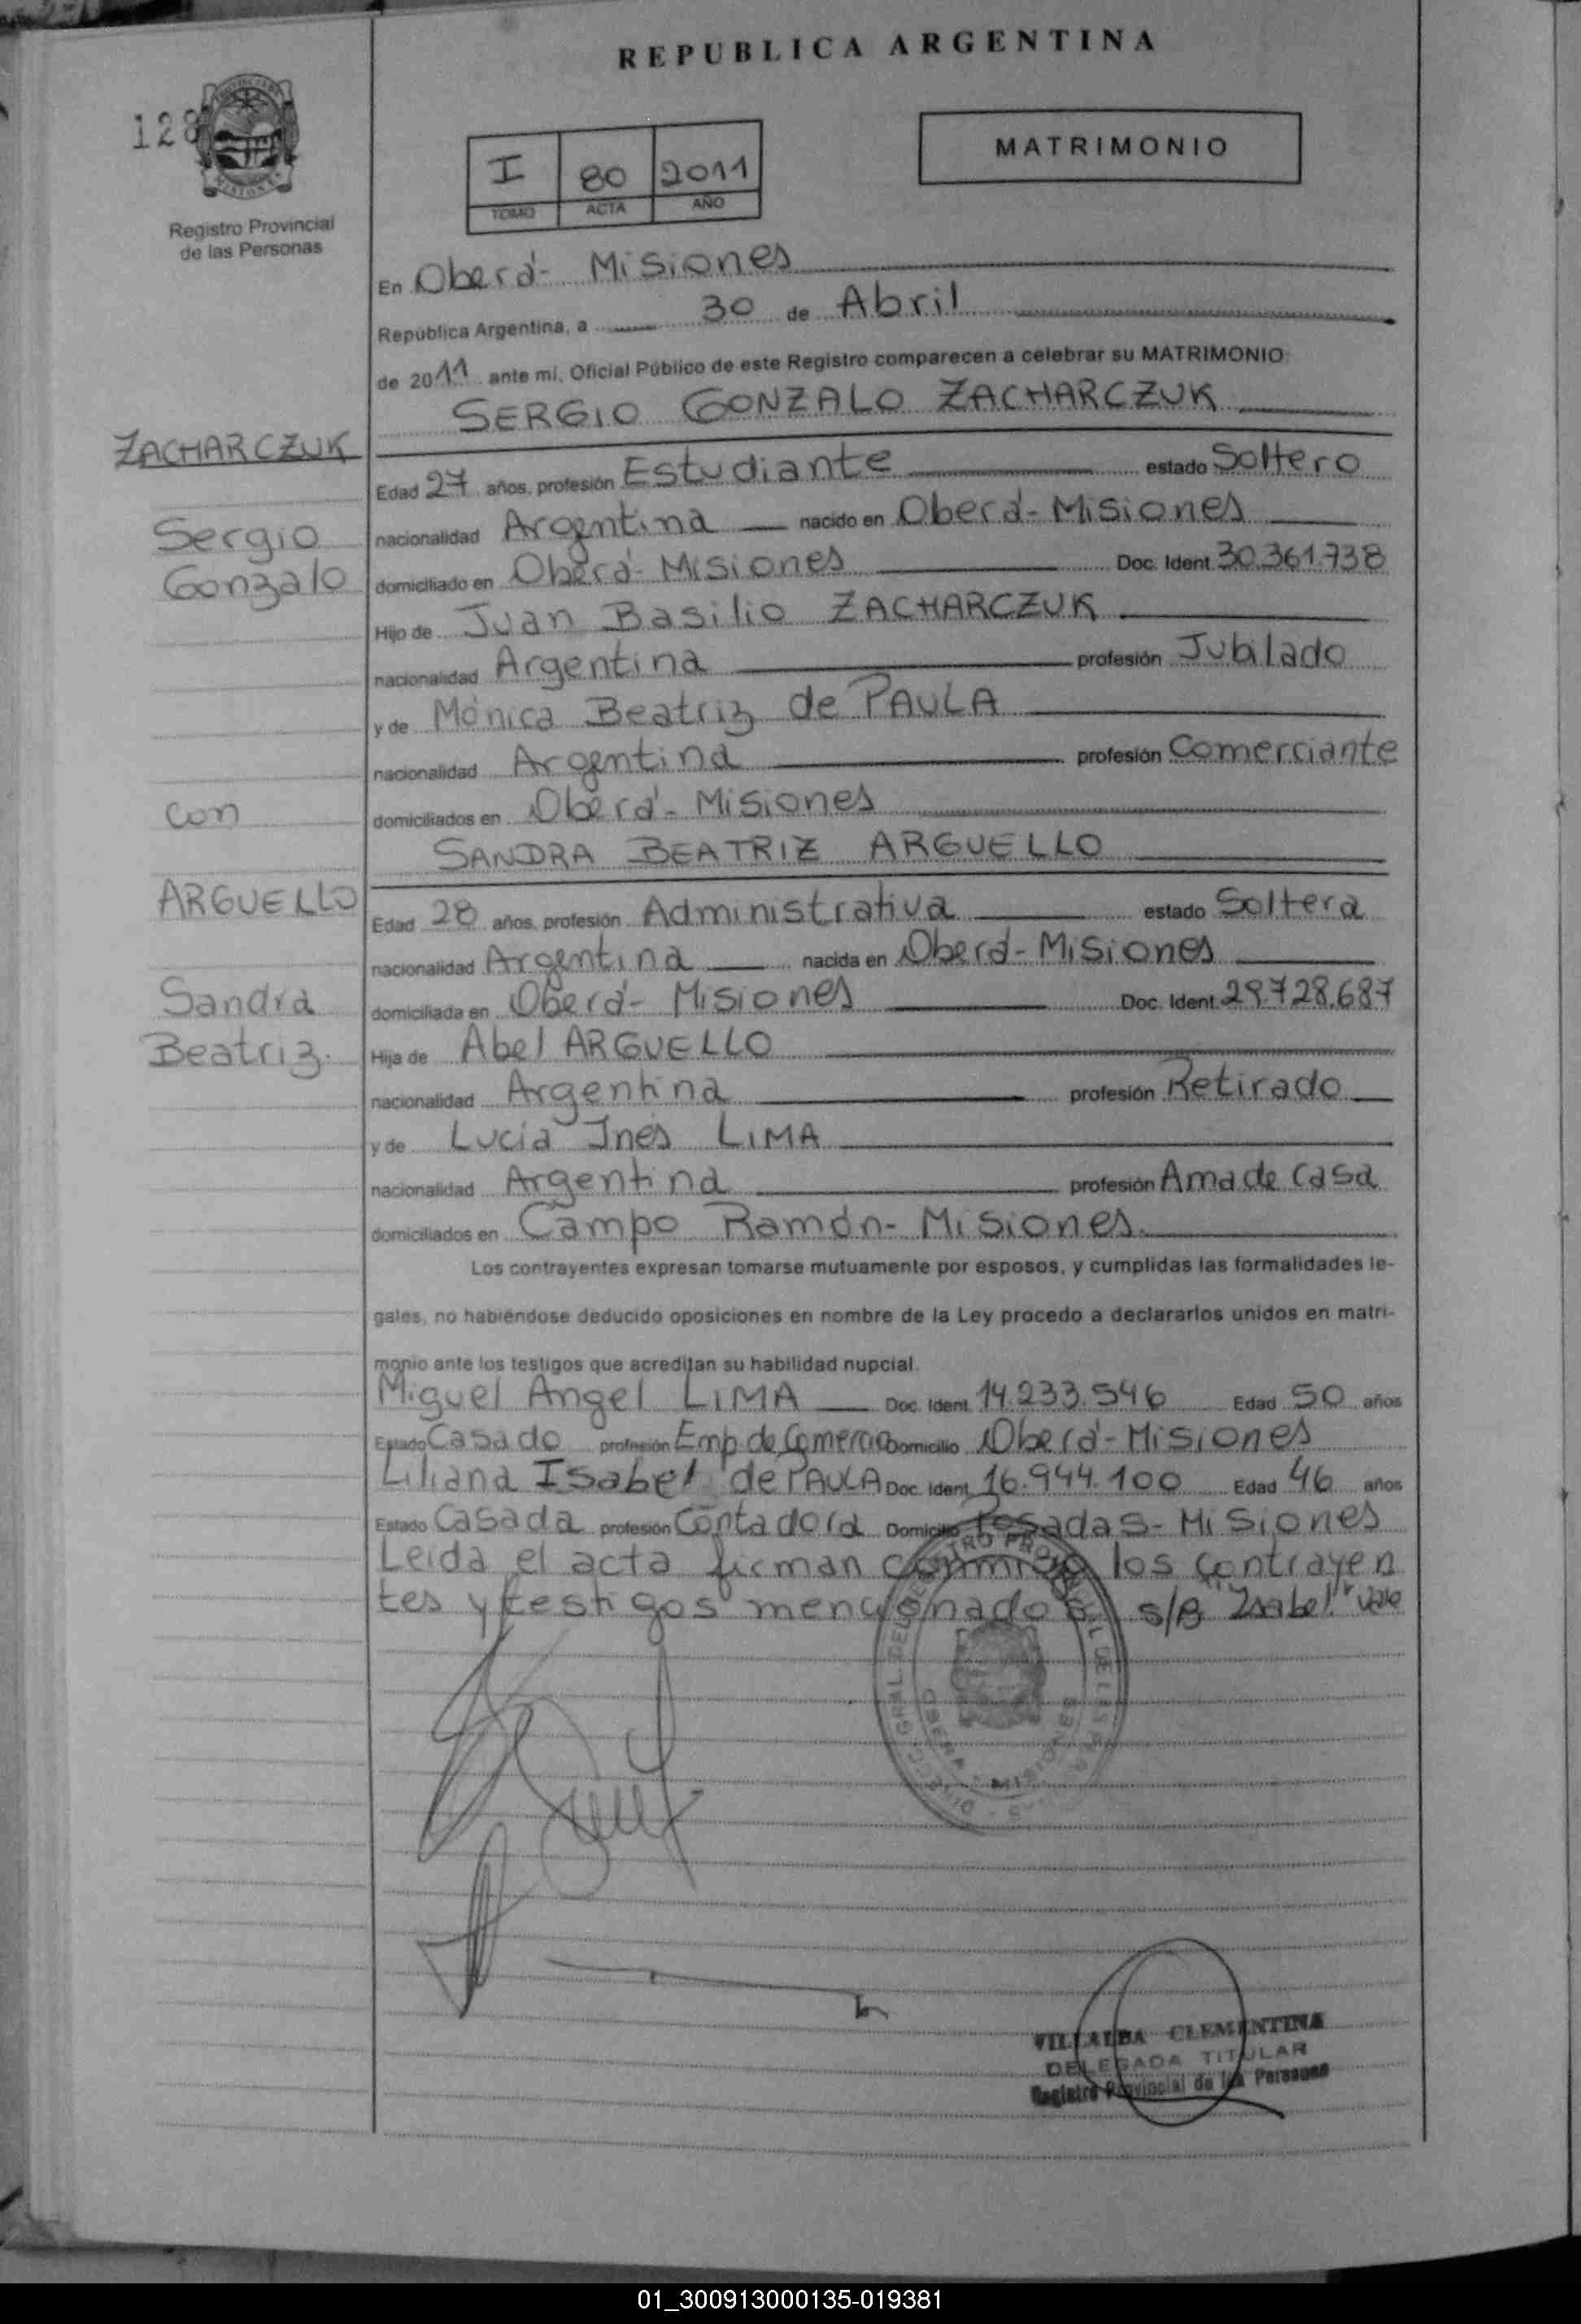 REPUBLICA ARGENTINA
128
MATRIMONIO
I 80 2011
TOMO ACTA AÑO
Registro Provincial
de las Personas
En Oberá- Misiones
República Argentina, a 30 de Abril
de 2011 ante mí, Oficial Público de este Registro comparecen a celebrar su MATRIMONIO:
SERGIO GONZALO ZACHARCZUK
ZACHARCZUK
Edad 27 años, profesión Estudiante estado Soltero
Sergio
nacionalidad Argentina nacido en Oberá- Misiones
Gonzalo
domiciliado en Oberá- Misiones Doc. Ident. 30.361.738
Hijo de Juan Basilio ZACHARCZUK
nacionalidad Argentina profesión Jubilado
y de Mónica Beatriz de PAULA
nacionalidad Argentina profesión Comerciante
con
domiciliados en Oberá- Misiones
SANDRA BEATRIZ ARGUELLO
ARGUELLO
Edad 28 años, profesión Administrativa estado Soltera
nacionalidad Argentina nacida en Oberá- Misiones
Sandra
domiciliada en Oberá- Misiones Doc. Ident. 29.728.687
Beatriz.
Hija de Abel ARGUELLO
nacionalidad Argentina profesión Retirado
y de Lucía Inés LIMA
nacionalidad Argentina profesión Ama de casa
domiciliados en Campo Ramón- Misiones.
Los contrayentes expresan tomarse mutuamente por esposos, y cumplidas las formalidades le-
gales, no habiéndose deducido oposiciones en nombre de la Ley procedo a declararlos unidos en matri-
monio ante los testigos que acreditan su habilidad nupcial.
Miguel Angel LIMA Doc. Ident. 14.233.546 Edad 50 años
Estado Casado profesión Emp. de Comercio Domicilio Oberá- Misiones
Liliana Isabel de PAULA Doc. Ident. 16.944.100 Edad 46 años
Estado Casada profesión Contadora Domicilio Posadas- Misiones
Leida el acta firman conmigo los contrayen
tes y testigos mencionados s/B "Isabel" vale
OBERA - MISIONES
VILLALBA CLEMENTINA
DELEGADA TITULAR
Registro Provincial de las Personas
01_300913000135-019381